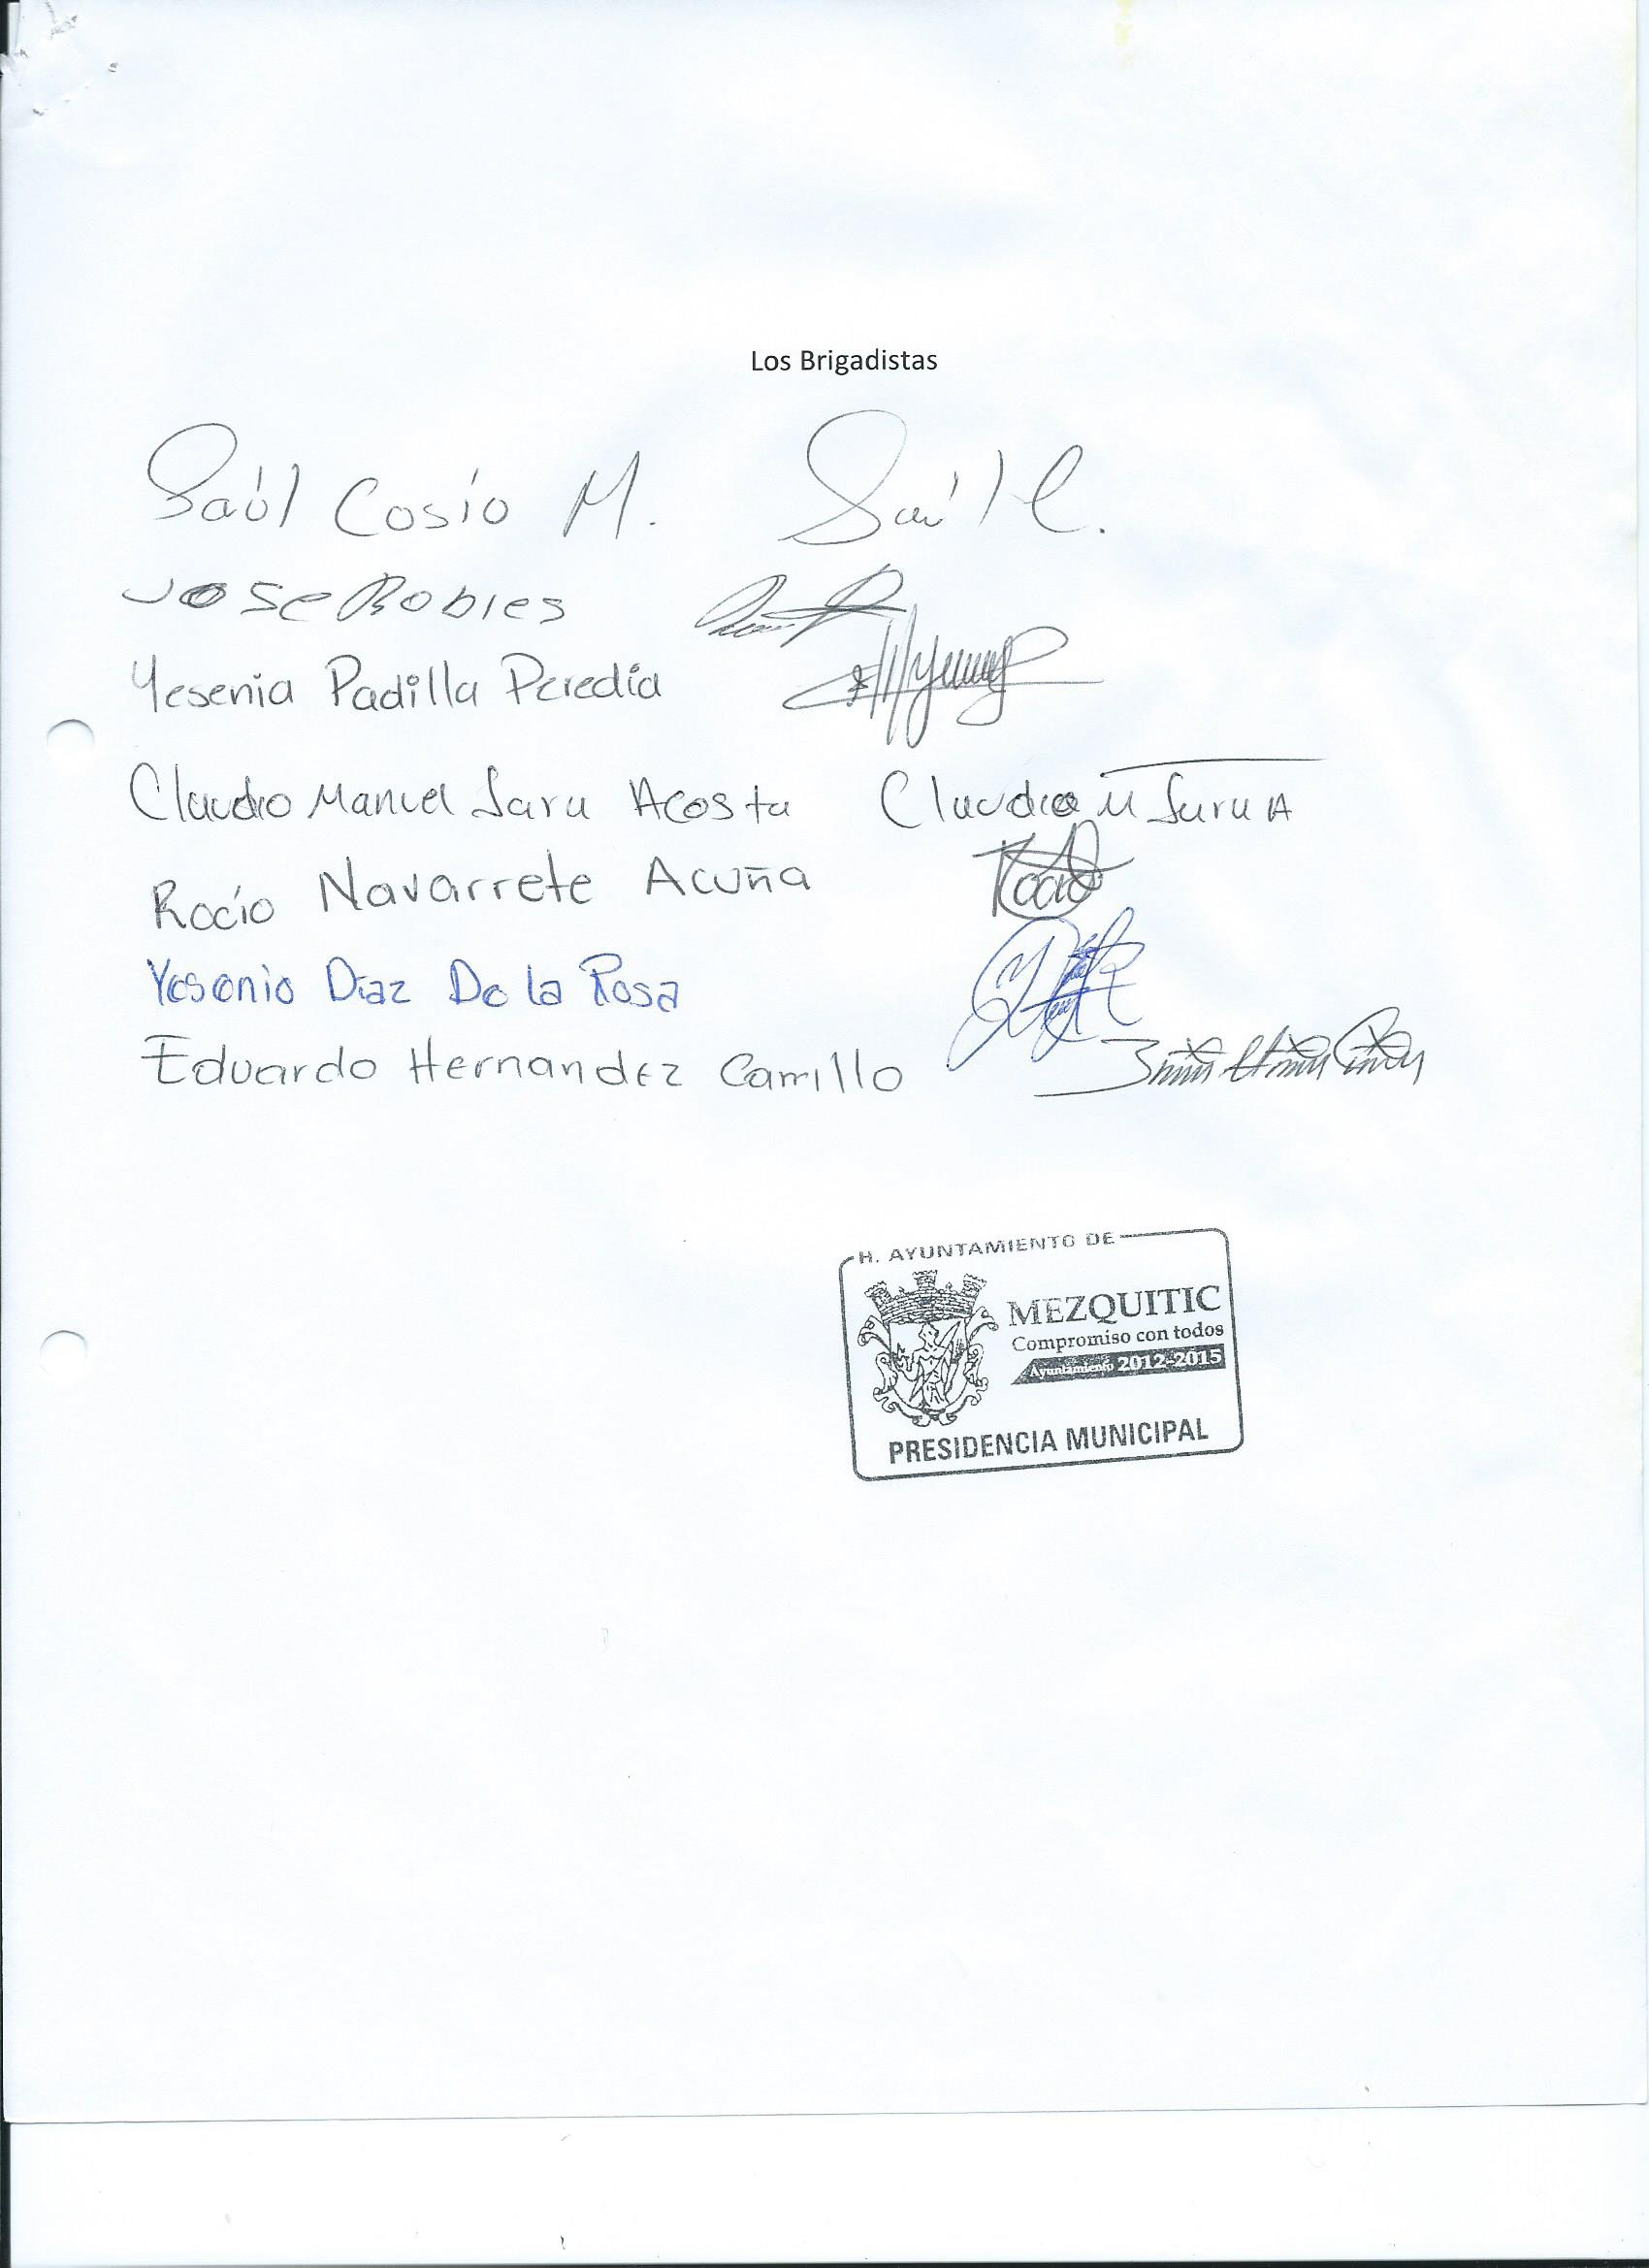 Los Brigadistas
Saúl Cosío M. Saúl C.
Jose Robles
Yesenia Padilla Peredia
Claudio Manuel Jara Acosta Claudio M Jara A
Rocío Navarrete Acuña Rocio
Yesenia Diaz De la Rosa
Eduardo Hernandez Carrillo
H. AYUNTAMIENTO DE
MEZQUITIC
Compromiso con todos
Ayuntamiento 2012-2015
PRESIDENCIA MUNICIPAL